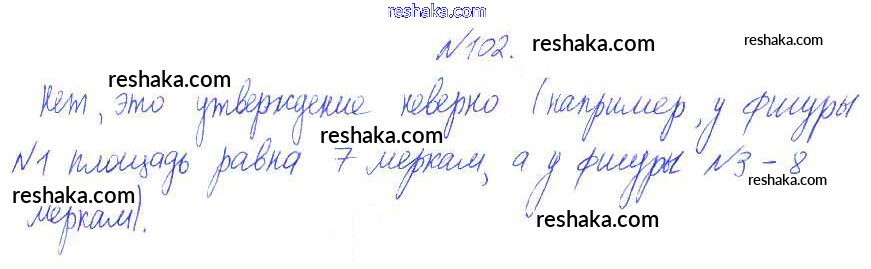 reshaka.com
№102. reshaka.com reshaka.com
reshaka.com
Нет, это утверждение неверно (например, у фигуры
reshaka.com
№1 площадь равна 7 меркам, а у фигуры №3 - 8
reshaka.com reshaka.com
меркам). reshaka.com